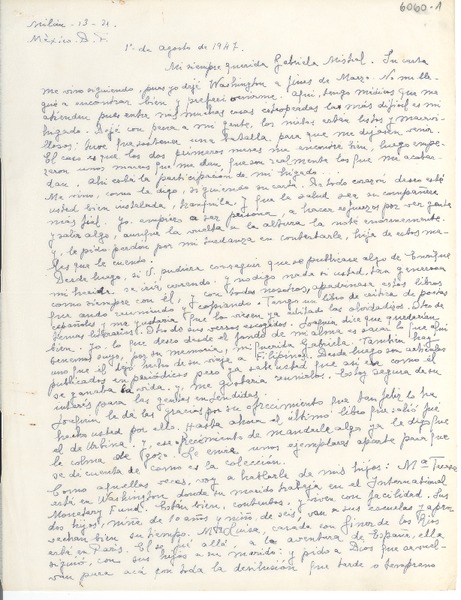 6060-1
Milán - 13 - 21.
México D. F.
1º de agosto de 1947.
Mi siempre querida Gabriela Mistral. Su carta
me vino siguiendo, pues yo dejé Washington a fines de Marzo. No me lle-
gué a encontrar bien y preferí venirme. Aquí, tengo médicos que me
atienden pues entre mil muchas cosas estropeadas la más difícil es mi
hígado. Dejé con pena a mi gente, los nietos están listos y maravi-
llosos: tuve que sostener una batalla para que me dejasen venir.
El caso es que los dos primeros meses me encontré bien, luego empe-
zaron unos mareos que me dan que son realmente los que me acobar-
dan. Ahí está la participación de mi hígado.
Me vino, como le digo, siguiendo su carta. De todo corazón deseo esté
usted bien instalada, tranquila y que la salud sea su compañera
más fiel. Yo, empiezo a ser persona, a hacer esfuerzos por ver gente
y saber algo, aunque la vuelta a la altura la noté enormemente.
Y, le pido perdón por mi tardanza en contestarle, hija de estos ma-
les que le cuento.
Desde luego, si V. pudiera conseguir que se publicase algo de Enrique
mi hermano se iría corriendo. Y no digo nada si usted, tan generosa
como siempre con él, y con todos nosotros, apadrinase estos libros
que ando reuniendo y copiando. Tengo un libro de crítica de poetas
españoles y me gustaría que lo viesen ya editado los olvidadizos. Otro de
temas literarios. Otro de sus versos escogidos. Joaquín dice que quedarían
bien. Yo, lo que deseo desde el fondo de mi alma es sacar lo que aquí
tenemos suyo, por su memoria, mi querida Gabriela. También hay
uno que él dejó hecho de su viaje a Filipinas. Desde luego son artículos
publicados en periódicos pero ya sabe usted que así era como él
se ganaba la vida. Y, me gustaría reunirlos. Estoy segura de su
interés para las gentes entendidas.
Joaquín le da las gracias por su ofrecimiento que tan feliz lo ha
hecho usted por ello. Hasta ahora el último libro que salió fue
el de Urbina. Y, ese ofrecimiento de mandarle algo ya le digo que
le colma de gozo. Le envía unos ejemplares aparte para que
se dé cuenta de como es la colección.
Como aquellas veces, voy a hablarle de mis hijos: Mª Teresa
está en Washington donde su marido trabaja en el International
Monetary Fund. Están bien, contentos, y viven con facilidad. Sus
dos hijos, niña de 10 años y niño de seis, van a sus escuelas y apro-
vechan bien su tiempo. Mª Luisa, casada con Giner de los Ríos
está en París. Él se fué allá, a la aventura de España, ella
siguió, con sus hijos a su marido: y pido a Dios que se vuel-
van para acá con toda la desilusión que tarde o temprano